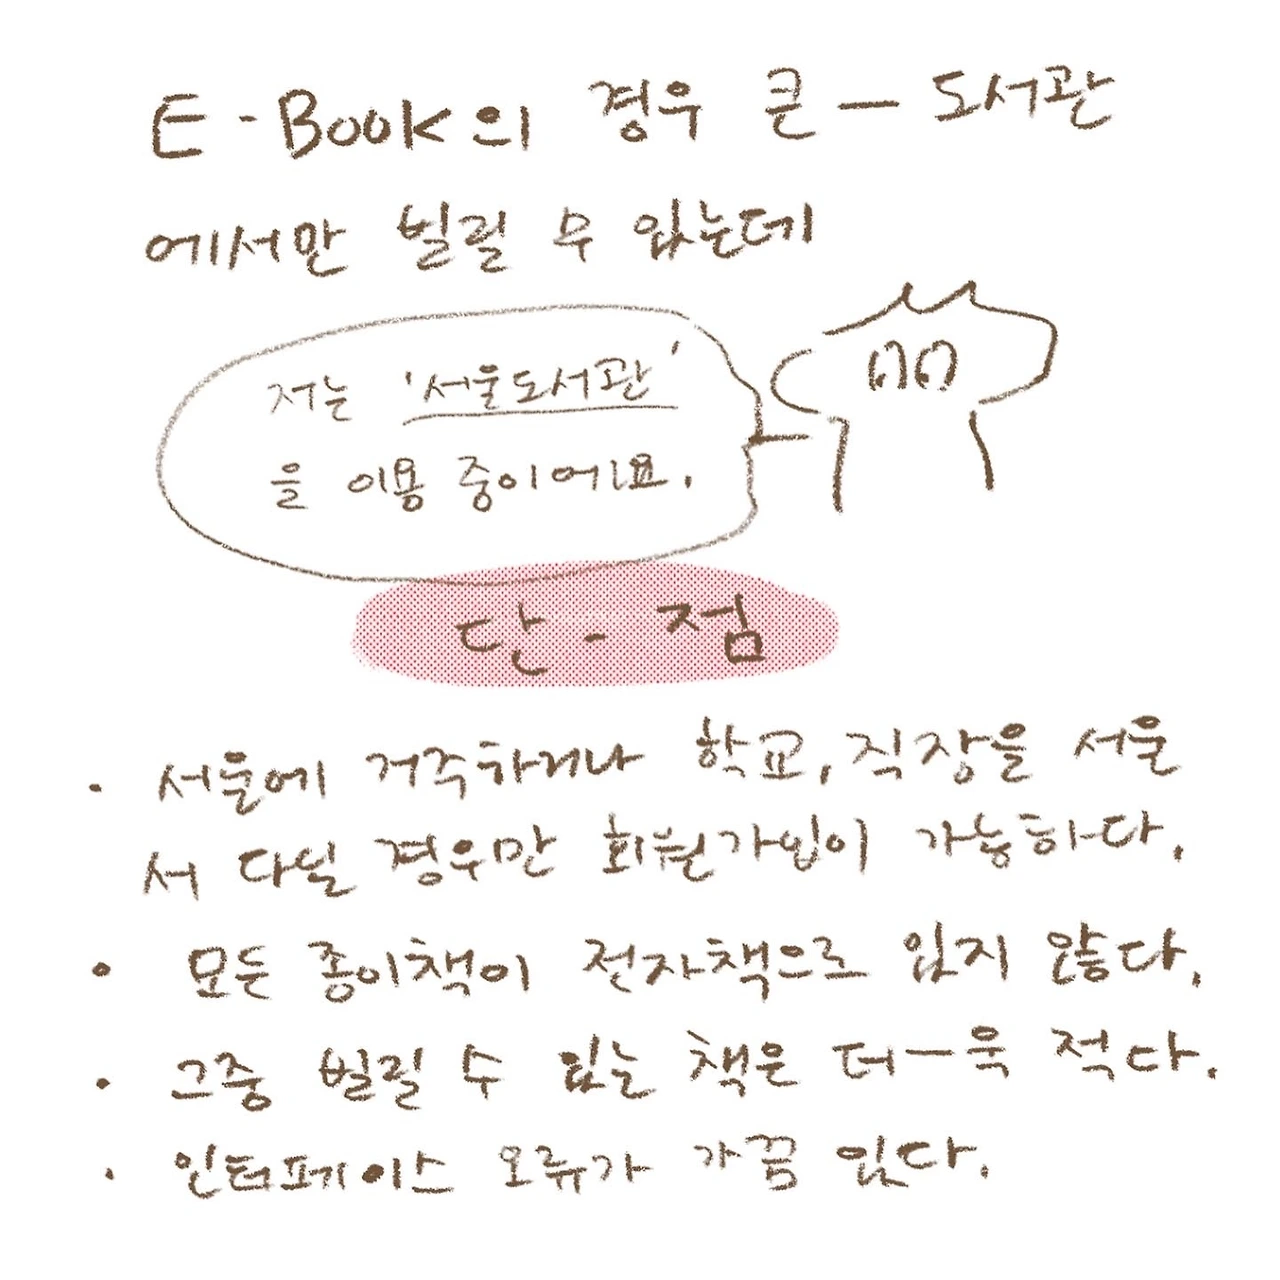 E-Book의 경우 큰ㅡ도서관
에서만 빌릴 수 있는데
저는 '서울도서관'
을 이용 중이에요.
단-점
· 서울에 거주하거나 학교, 직장을 서울
서 다닐 경우만 회원가입이 가능하다.
· 모든 종이책이 전자책으로 있지 않다.
· 그중 빌릴 수 있는 책은 더ㅡ욱 적다.
· 인터페이스 오류가 가끔 있다.